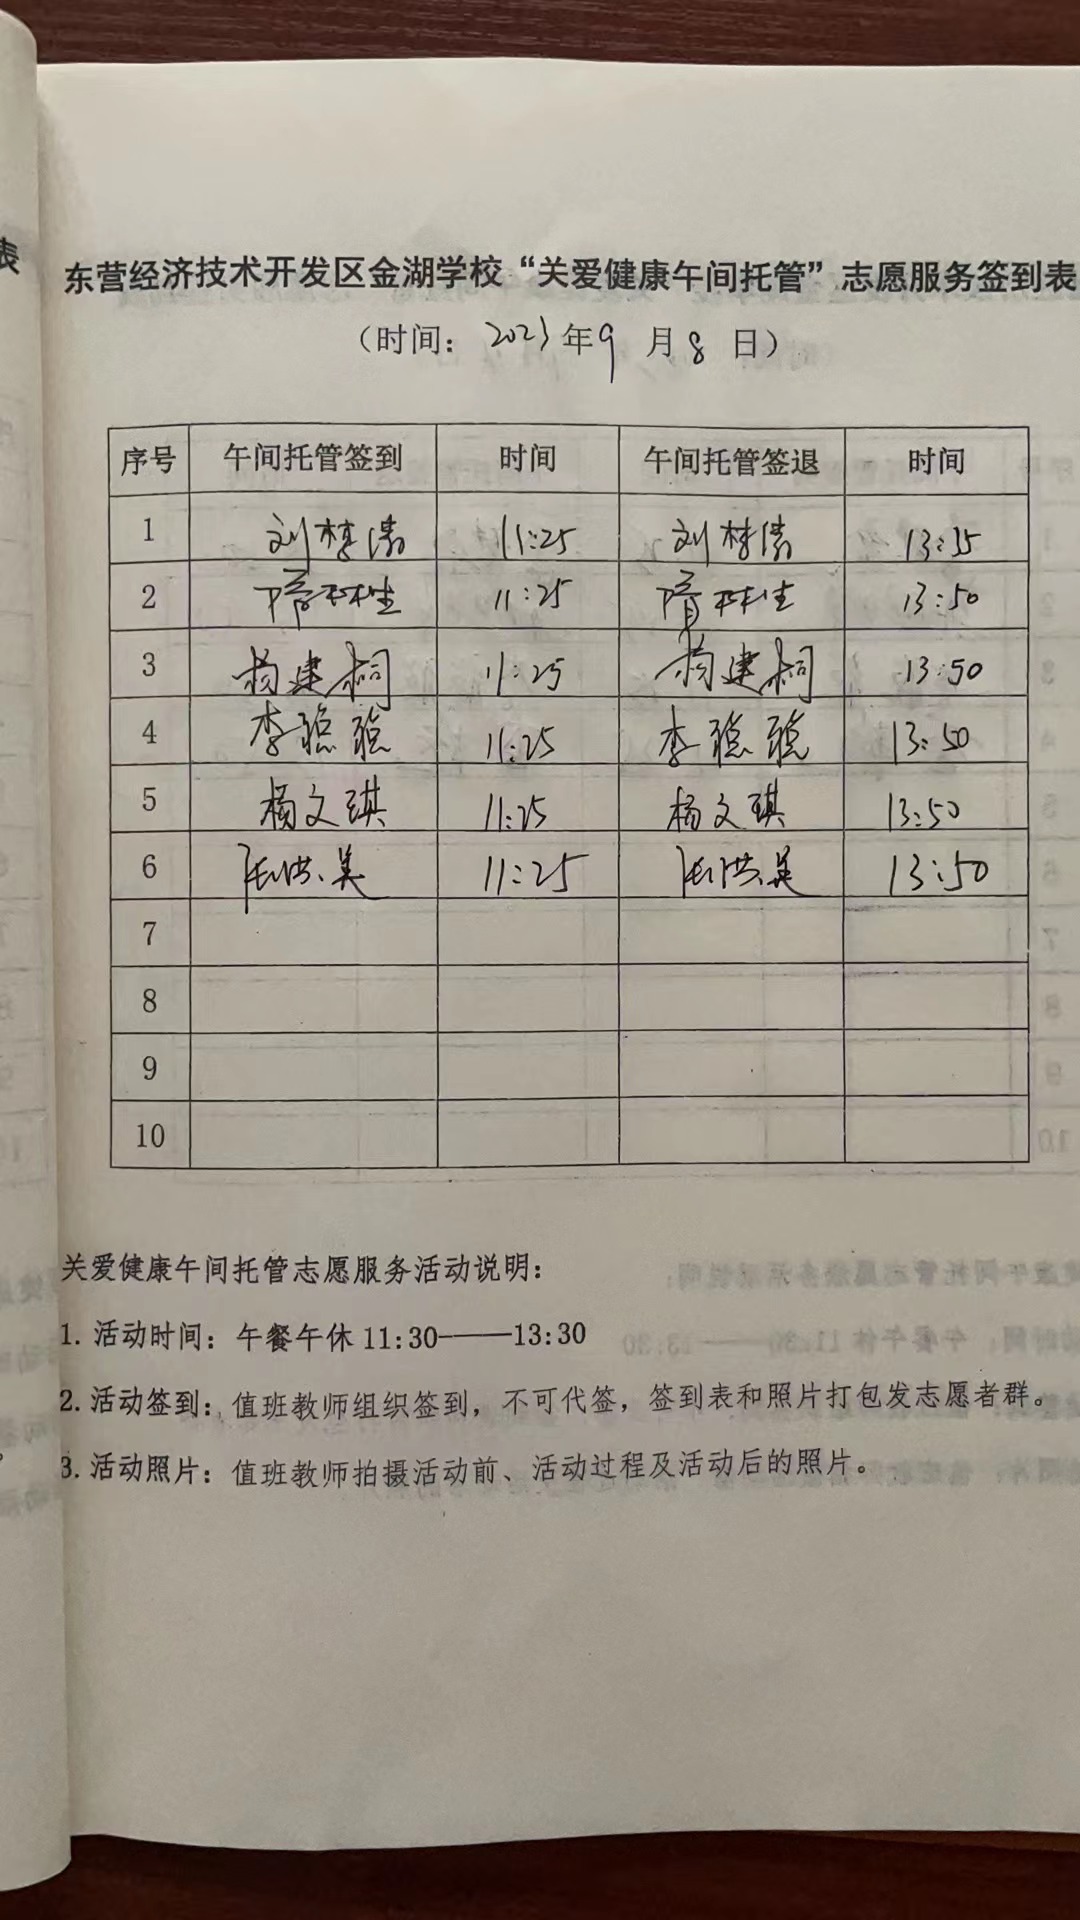 表
东营经济技术开发区金湖学校“关爱健康午间托管”志愿服务签到表
（时间：2023年9月8日）
序号 午间托管签到 时间 午间托管签退 时间
1 刘梦倩 11:25 刘梦倩 13:35
2 隋林生 11:25 隋林生 13:50
3 杨建桐 11:25 杨建桐 13:50
4 李聪聪 11:25 李聪聪 13:50
5 杨文琪 11:25 杨文琪 13:50
6 张洪英 11:25 张洪英 13:50
7
8
9
10
关爱健康午间托管志愿服务活动说明：
1. 活动时间：午餐午休 11:30——13:30
2. 活动签到：值班教师组织签到，不可代签，签到表和照片打包发志愿者群。
3. 活动照片：值班教师拍摄活动前、活动过程及活动后的照片。